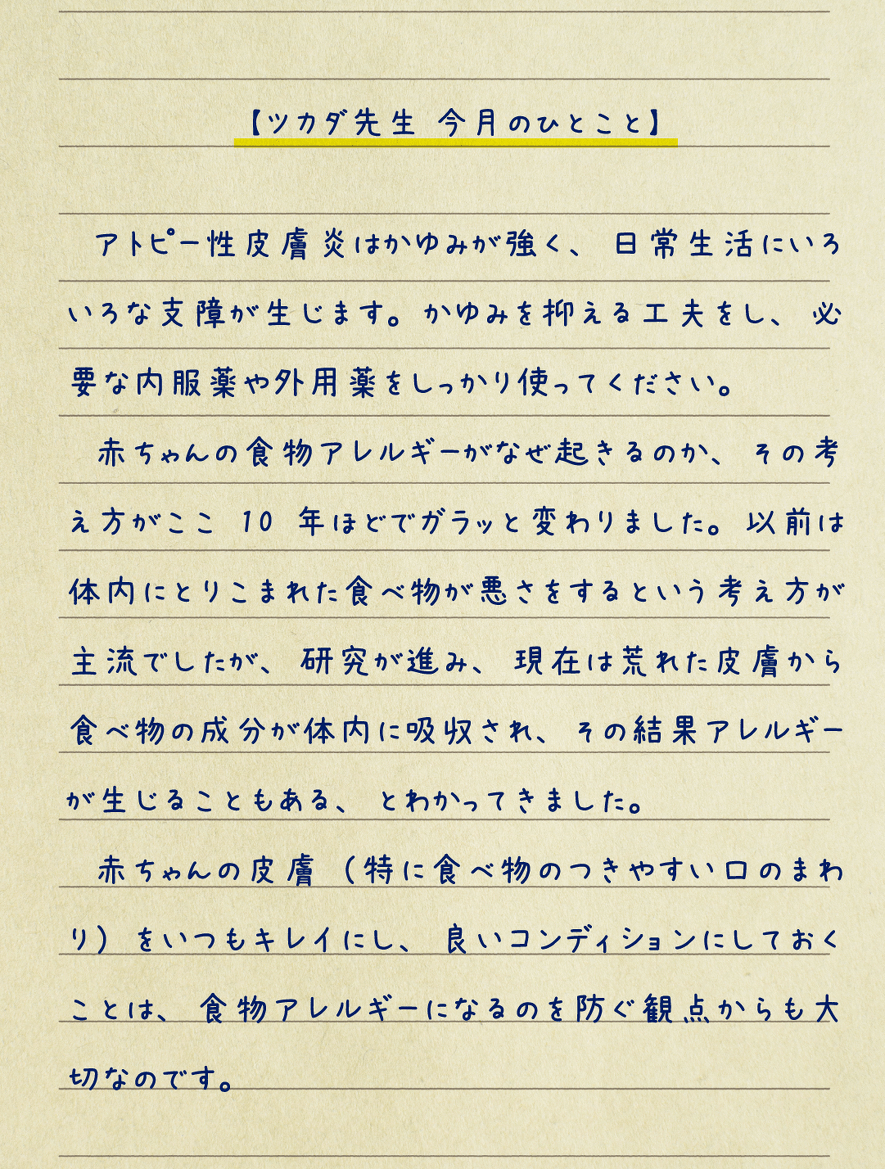 【ツカダ先生 今月のひとこと】
アトピー性皮膚炎はかゆみが強く、日常生活にいろ
いろな支障が生じます。かゆみを抑える工夫をし、必
要な内服薬や外用薬をしっかり使ってください。
赤ちゃんの食物アレルギーがなぜ起きるのか、その考
え方がここ 10 年ほどでガラッと変わりました。以前は
体内にとりこまれた食べ物が悪さをするという考え方が
主流でしたが、研究が進み、現在は荒れた皮膚から
食べ物の成分が体内に吸収され、その結果アレルギー
が生じることもある、とわかってきました。
赤ちゃんの皮膚（特に食べ物のつきやすい口のまわ
り）をいつもキレイにし、良いコンディションにしておく
ことは、食物アレルギーになるのを防ぐ観点からも大
切なのです。